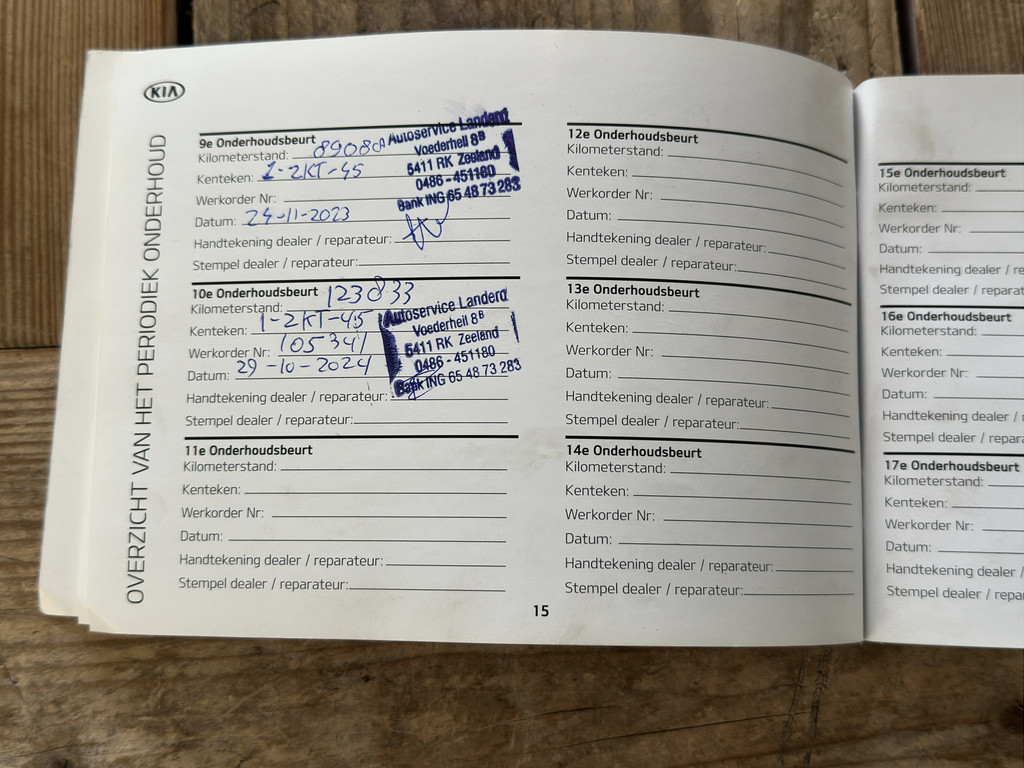 KIA
OVERZICHT VAN HET PERIODIEK ONDERHOUD
9e Onderhoudsbeurt
Kilometerstand: 89080
Kenteken: 1-ZKT-45
Werkorder Nr:
Datum: 24-11-2023
Handtekening dealer / reparateur:
Stempel dealer / reparateur:
Autoservice Landerd
Voederheil 8B
5411 RK Zeeland
0486 - 451180
Bank ING 65 48 73 283
10e Onderhoudsbeurt
Kilometerstand: 123833
Kenteken: 1-ZKT-45
Werkorder Nr: 105341
Datum: 29-10-2024
Handtekening dealer / reparateur:
Stempel dealer / reparateur:
Autoservice Landerd
Voederheil 8B
5411 RK Zeeland
0486 - 451180
Bank ING 65 48 73 283
11e Onderhoudsbeurt
Kilometerstand:
Kenteken:
Werkorder Nr:
Datum:
Handtekening dealer / reparateur:
Stempel dealer / reparateur:
12e Onderhoudsbeurt
Kilometerstand:
Kenteken:
Werkorder Nr:
Datum:
Handtekening dealer / reparateur:
Stempel dealer / reparateur:
13e Onderhoudsbeurt
Kilometerstand:
Kenteken:
Werkorder Nr:
Datum:
Handtekening dealer / reparateur:
Stempel dealer / reparateur:
14e Onderhoudsbeurt
Kilometerstand:
Kenteken:
Werkorder Nr:
Datum:
Handtekening dealer / reparateur:
Stempel dealer / reparateur:
15
15e Onderhoudsbeurt
Kilometerstand:
Kenteken:
Werkorder Nr:
Datum:
Handtekening dealer / re
Stempel dealer / reparat
16e Onderhoudsbeurt
Kilometerstand:
Kenteken:
Werkorder Nr:
Datum:
Handtekening dealer /
Stempel dealer / repara
17e Onderhoudsbeurt
Kilometerstand:
Kenteken:
Werkorder Nr:
Datum:
Handtekening dealer /
Stempel dealer / repa